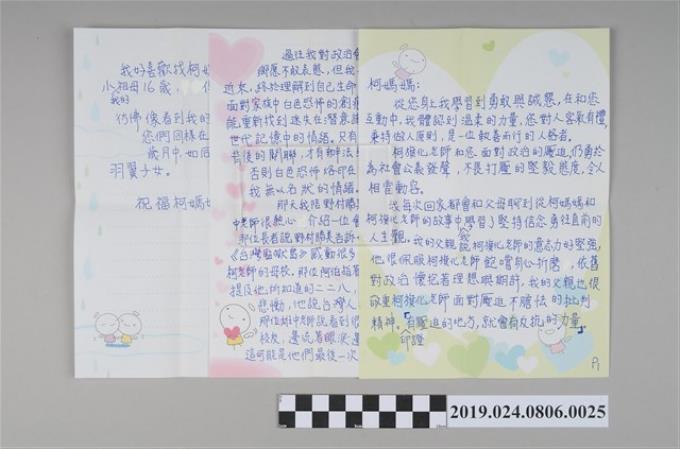 柯媽媽:
從您身上我學習到勇敢與誠懇,在和您
互動中,我體認到溫柔的力量,您對人客氣有禮,
秉持做人原則,是一位敦善而行的人格者。
柯旗化老師和您面對政治的壓迫,仍勇於
為社會公義發聲,不畏打壓的堅毅態度,令人
相當動容。
我每次回家都會和父母聊到從柯媽媽和
柯旗化老師的故事中學習了堅持信念勇往直前的
人生觀。我的父親說柯旗化老師的意志力的堅強,
他很佩服柯旗化老師飽嚐身心折磨,依舊
對政治懷抱著理想與期許,我的父親也很
敬重柯旗化老師面對壓迫不膽怯的批判
精神。「有壓迫的地方,就會有反抗的力量」
印證
P1
過往我對政治
鄉愿不敢表態,但我
近來,終於理解到自己生命
面對家族中白色恐怖的創
能重新找到迷失在潛意識
世代記憶中的情緒。只有
背後的關聯,才有辦法
否則白色恐怖烙印在
我無以名狀的情緒。
那天我陪野村
中老師很熱心介紹一位
那位長者說野村勝美告訴
《台灣監獄島》感動很多
柯老師的母校。那位阿伯
提及他所知道的二二八,
悲慟,他說台灣人
那位雄中老師說看到很
校友,邊流著眼淚
這可能是他們最後一次
我好喜歡找柯媽
小祖母16歲,
我的
彷彿像看到我的
您們同樣在
歲月中,如同
羽翼子女。
祝福柯媽媽
2019.024.0806.0025